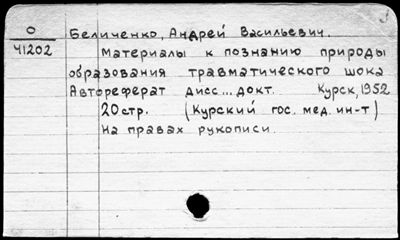 О
41202
Беличенко, Андрей Васильевич.
Материалы к познанию природы
образования травматического шока
Автореферат дисс... докт. Курск, 1952
20 стр. (Курский гос. мед. ин-т)
На правах рукописи.